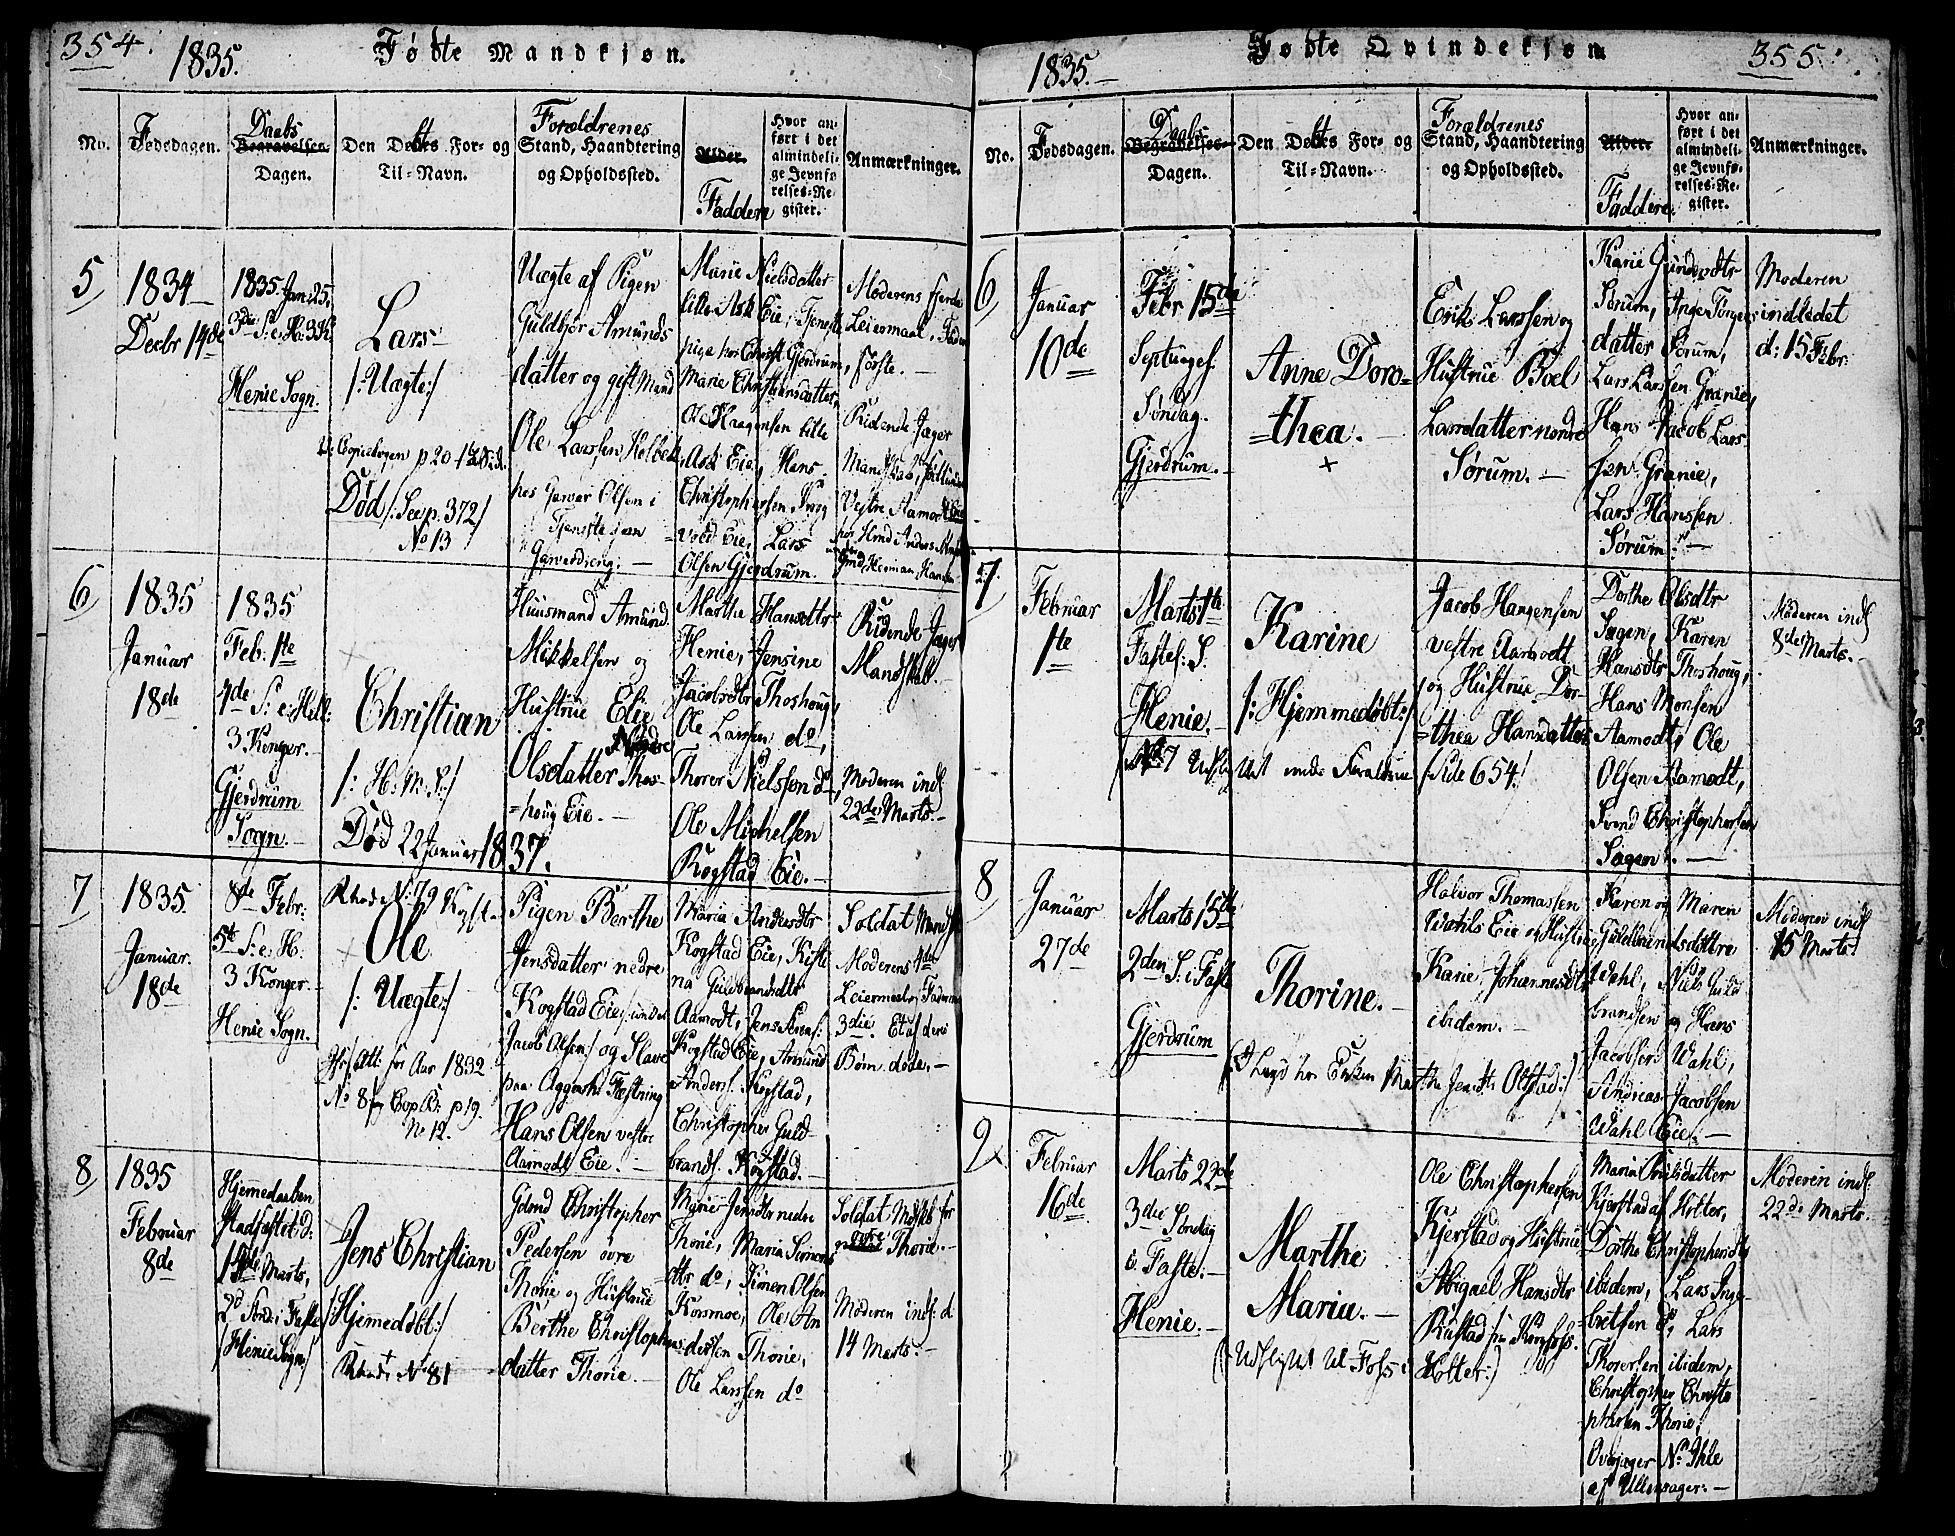 354.
1835.
Fødte Mandkjøn.
No.
Fødsdagen.
Daabs
Begravelses-
Dagen.
Den Døbtes For- og
Til-Navn.
Forældrenes
Stand, Haandtering
og Opholdssted.
Alder.
Faddere
Hvor an-
ført i det
almindeli-
ge Jevnfø
relses-Re-
gister.
Anmærkninger.
5
1834
Decbr 14de
1835. Jan. 25,
3die S: e: H: 3 K:
Henie Sogn.
Lars
/: Uægte:/
Død /: See p. 372/
No 13
Uægte af Pigen
Guldbjør Amunds
datter og gift Mand
Ole Larssen Holbek
hos Garver Olsen i
Tjeneste
Marie Nielsdatter
lille Ask Eie, Tjeneste
pige hos Christ. Gjerdrum,
Marie Christiansdatter
Ole Haagensen lille
Ask Eie, Hans
Christophersen Krog
vold Eie, Lars
Olsen Gjerdrum.
Moderens fjerde
Leiermaal, Fader
første.
Ridende Jæger
Vestre Aamodt Eie
6
1835
Januar
18de
1835
Feb: 1te
4de S: e: Hell:
3 Konger.
Gjerdrum
Sogn.
Christian
/: H: M: S:/
Død 22 Januar 1837.
Huusmand Amund
Mikkelsen og
Hustrue Elie
Nordre
Olsdatter Thos-
=houg Eie.
Marthe Hansdtr
Henie, Jensine
Jacobsdtr Thoshoug,
Ole Larssen do,
Thorer Nielssen do,
Ole Michelsen
Kogstad Eie.
Ridende Jæger
Mandskab.
Moderen indl
22de Marts.
7
1835.
Januar.
18de
8de Febr:
5te S: e: H:
3 Konger.
Henie Sogn.
Ole
/: Uægte:/
for Aar 1832
No 8
p 19.
No 12.
Pigen Berthe
Jensdatter nedre
Kogstad Eie
Jacob Olsen/ og Slave
paa Aggersh: Fæstning
Hans Olsen vestre
Aamodt Eie.
Maria Andersdtr
Kogstad Eie, Kisti
na Guldbrandsdtr
Aamodt, Jens
Kogstad Eie, Amund
Anders: Kogstad,
Christopher Guld-
brands: Kogstad.
Soldat
Moderens 4de
Leiermaal, Faderens
3die. Et af deres
Børn døde.
8
1835
Februar
8de
Hjemedaaben
stadfæstet D:
15de Marts,
2d Sønd i Faste
/Henie Sogn/
Jens Christian
/Hjemedøbt:/
No 81
Gdmd Christopher
Pedersen øvre
Thorie og Hustrue
Berthe Christophers
datter Thorie.
Marie Jensdtr nedre
Thorie, Maria Simens
dtr do, Simen Olsen
Korsmoe, Ole An
derssen Thorie,
Ole Larssen do
Soldat
Thorie.
Moderen indl: d:
14 Marts.
1835.
Fødte Qvindekjøn
355.
No.
Fødsdagen.
Daabs
Begravelses-
Dagen.
Den Døbtes For- og
Til-Navn.
Forældrenes
Stand, Haandtering
og Opholdssted.
Alder.
Faddere.
Hvor an-
ført i det
almindeli-
ge Jevnfø-
relses-Re-
gister.
Anmærkninger.
6
Januar
10de
Febr 15de
Septuages:
Søndag.
Gjerdrum.
Anne Doro=
=thea.
Erik Larssen og
Hustrue Boel
Larsdatter nordre
Sørum.
Karie
Sørum, Inge Torgers
datter Sørum,
Lars Larssen Granie,
Hans Jacob Lars
sen Granie,
Lars Hanssen
Sørum.
Moderen
indledet
d: 15 Febr:
7.
Februar
1te
Marts 1te
Fastes: S.
Henie.
Karine
/: Hjemmedøbt:/
No 7 Udfl:
/Side 654./
Jacob Haagensen
vestre Aamodt
og Hustrue Dor-
=thea Hansdatter
Dorthe Olsdtr
Søgen, Karen
Hansdtr Thoshoug,
Hans Monsen
Aamodt, Ole
Olsen Aamodt,
Svend Christophersen
Søgen.
Moderen indl
8de Marts.
8
Januar
27de
Marts 15de
2den S. i Faste
Gjerdrum
Thorine.
Halvor Thomassen
Wahls Eie og Hustrue
Karie Johannesdtr
ibidem.
Karen og Maren
Guldbrandsdøttre
Wahl, Niels Guld
brandsen og Hans
Jacobsen Wahl,
Andreas Jacobsen
Wahl Eie.
Moderen indl
15 Marts.
9
Februar
16de
Marts 22de
3die Søndag
i Faste.
Henie.
Marthe
Maria.
(Udflyttet til
Holter:)
Ole Christophersen
Kjerstad og Hustrue
Abigael Hansdtr
Rustad
Maria Orelsdatter
Kjerstad af Holter,
Dorthe Christophersdtr
ibidem, Lars Inge-
bretsen do, Lars
Thorersen ibidem,
Christopher Christo
phersen Thorie,
Overjæger N: Ihle
af Ullensager.
Moderen indl.
22de Marts.